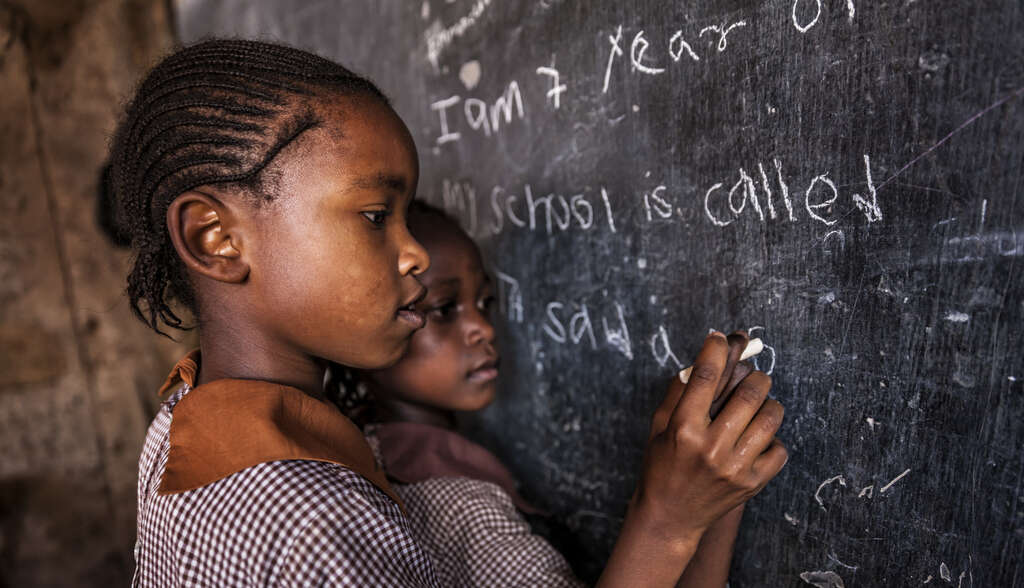 I am 7 years o
my school is called
said a